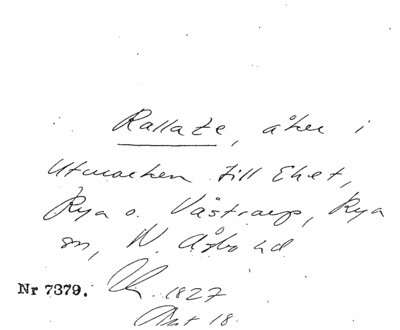 Rallate, åker i
Utmarken till Ehet,
Rya o. Västraup, Rya
sn, N. Åsbo hd
Nr 7379. 1827
Akt 18.